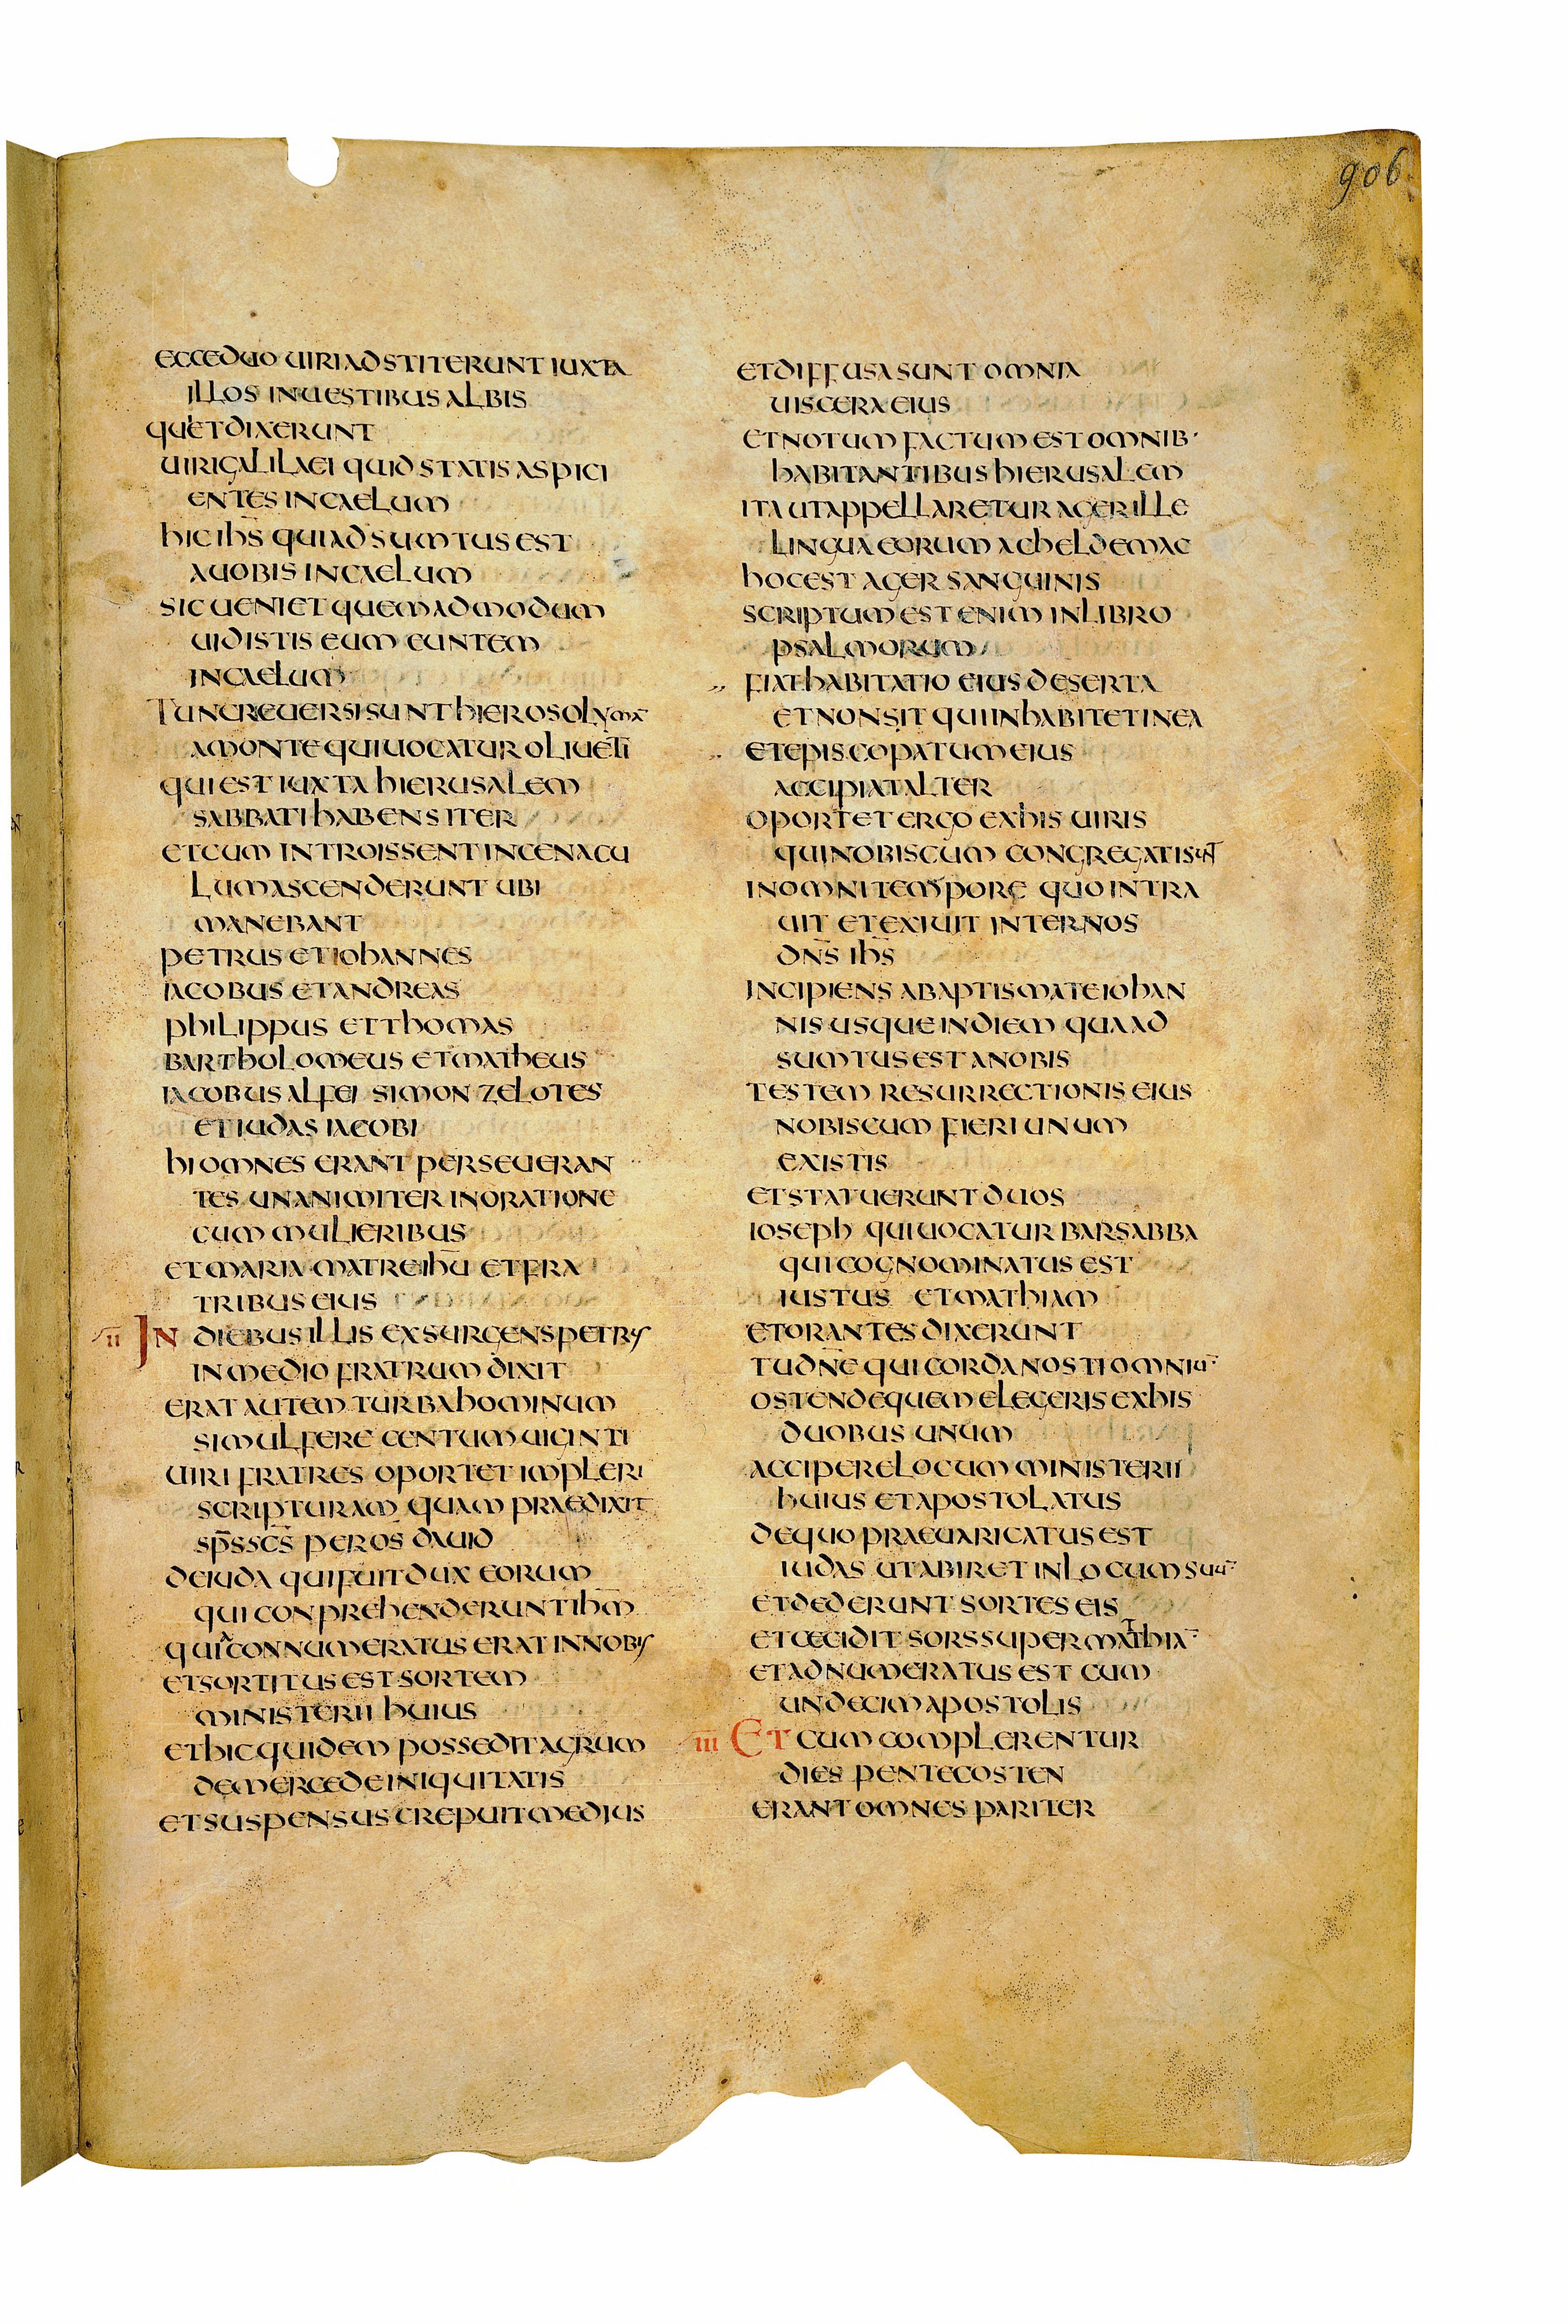 906
ECCEDUO UIRI ADSTITERUNT IUXTA
ILLOS IN UESTIBUS ALBIS
QUI ET DIXERUNT
UIRI GALILAEI QUID STATIS ASPICI
ENTES IN CAELUM
HIC IH̅S QUI ADSUMTUS EST
A UOBIS IN CAELUM
SIC UENIET QUEMADMODUM
UIDISTIS EUM EUNTEM
IN CAELUM
TUNC REUERSI SUNT HIEROSOLYMA
A MONTE QUI UOCATUR OLIUETI
QUI EST IUXTA HIERUSALEM
SABBATI HABENS ITER
ET CUM INTROISSENT IN CENACU
LUM ASCENDERUNT UBI
MANEBANT
PETRUS ET IOHANNES
IACOBUS ET ANDREAS
PHILIPPUS ET THOMAS
BARTHOLOMEUS ET MATHEUS
IACOBUS ALFEI SIMON ZELOTES
ET IUDAS IACOBI
HI OMNES ERANT PERSEUERAN
TES UNANIMITER IN ORATIONE
CUM MULIERIBUS
ET MARIA MATRE IH̅U ET FRA
TRIBUS EIUS
II IN DIEBUS ILLIS EXSURGENS PETRUS
IN MEDIO FRATRUM DIXIT
ERAT AUTEM TURBA HOMINUM
SIMUL FERE CENTUM UIGINTI
UIRI FRATRES OPORTET IMPLERI
SCRIPTURAM QUAM PRAEDIXIT
SP̅S SC̅S PER OS DAUID
DE IUDA QUI FUIT DUX EORUM
QUI CONPREHENDERUNT IH̅M
QUIA CONNUMERATUS ERAT IN NOBIS
ET SORTITUS EST SORTEM
MINISTERII HUIUS
ET HIC QUIDEM POSSEDIT AGRUM
DE MERCEDE INIQUITATIS
ET SUSPENSUS CREPUIT MEDIUS
ET DIFFUSA SUNT OMNIA
UISCERA EIUS
ET NOTUM FACTUM EST OMNIB·
HABITANTIBUS HIERUSALEM
ITA UT APPELLARETUR AGER ILLE
LINGUA EORUM ACHELDEMAC
HOC EST AGER SANGUINIS
SCRIPTUM EST ENIM IN LIBRO
PSALMORUM
FIAT HABITATIO EIUS DESERTA
ET NON SIT QUI INHABITET IN EA
ET EPISCOPATUM EIUS
ACCIPIAT ALTER
OPORTET ERGO EX HIS UIRIS
QUI NOBISCUM CONGREGATI SUNT
IN OMNI TEMPORE QUO INTRA
UIT ET EXIUIT INTER NOS
DN̅S IH̅S
INCIPIENS A BAPTISMATE IOHAN
NIS USQUE IN DIEM QUA AD
SUMTUS EST A NOBIS
TESTEM RESURRECTIONIS EIUS
NOBISCUM FIERI UNUM
EX ISTIS
ET STATUERUNT DUOS
IOSEPH QUI UOCATUR BARSABBA
QUI COGNOMINATUS EST
IUSTUS ET MATHIAM
ET ORANTES DIXERUNT
TU DN̅E QUI CORDA NOSTI OMNIU̅
OSTENDE QUEM ELEGERIS EX HIS
DUOBUS UNUM
ACCIPERE LOCUM MINISTERII
HUIUS ET APOSTOLATUS
DE QUO PRAEUARICATUS EST
IUDAS UT ABIRET IN LOCUM SUU̅
ET DEDERUNT SORTES EIS
ET CECIDIT SORS SUPER MATTHIA̅
ET ADNUMERATUS EST CUM
UNDECIM APOSTOLIS
III ET CUM COMPLERENTUR
DIES PENTECOSTEN
ERANT OMNES PARITER